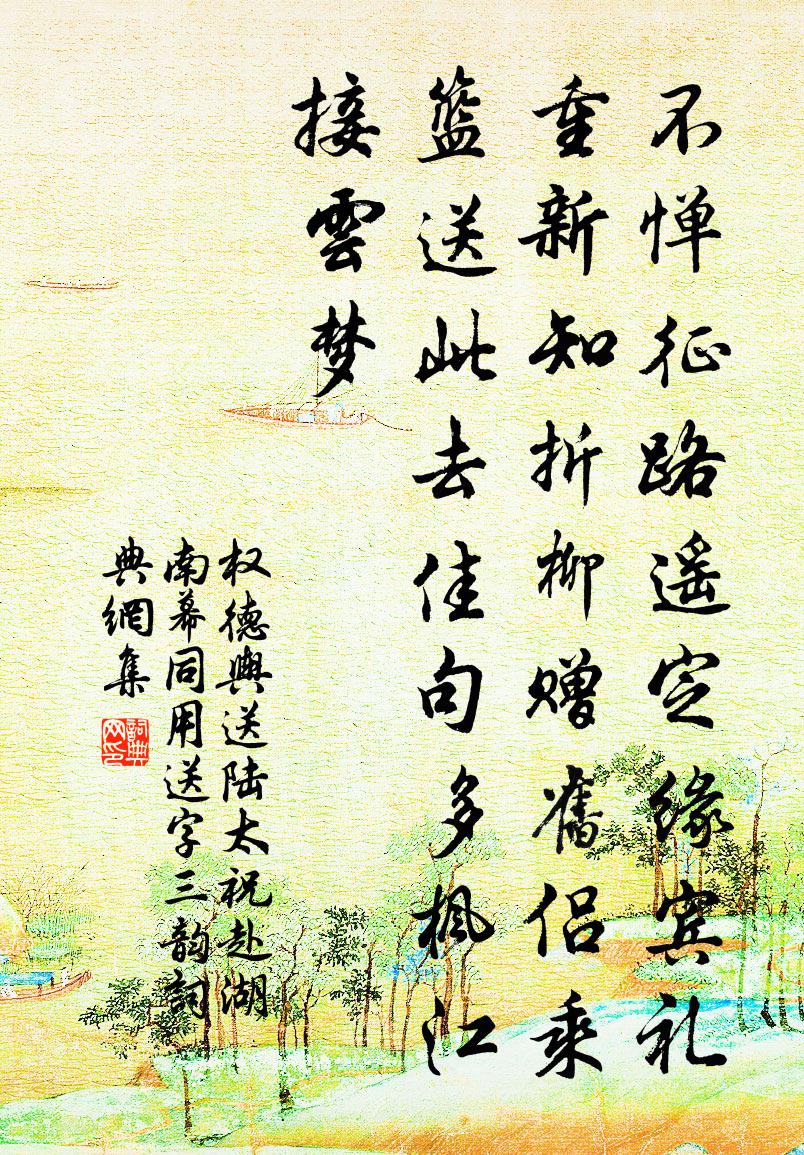 不惮征路遥定缘宾礼
重新知折柳赠旧侣乘
篮送此去佳句多枫江
接雲梦
权德舆送陆太祝赴湖
南幕同用送字三韵词
典網集
詞典網印